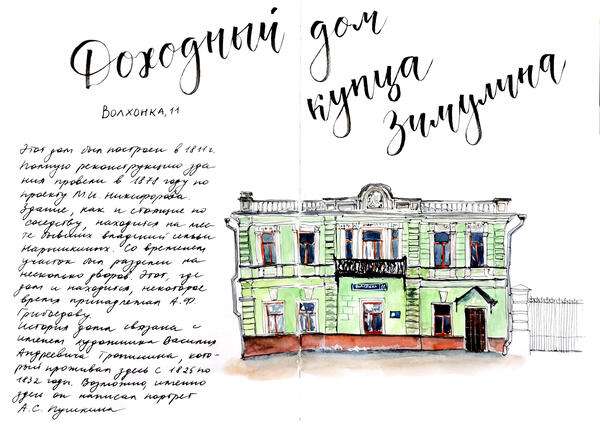 Доходный дом
купца
Зимулина
Волхонка, 11
Этот дом был построен в 1811г.
Полную реконструкцию зда-
ния провели в 1878 году по
проекту М.И. Никифорова.
Здание, как и стоящие по
соседству, находится на мес-
те бывших владений семьи
Нарышкиных. Со временем,
участок был разделен на
несколько дворов. Этот, где
дом и находится, некоторое
время принадлежал А.Ф.
Грибоедову.
История дома связана с
именем художника Василия
Андреевича Тропинина, кото-
рый проживал здесь с 1825 по
1832 годы. Возможно, именно
здесь он написал портрет
А.С. Пушкина